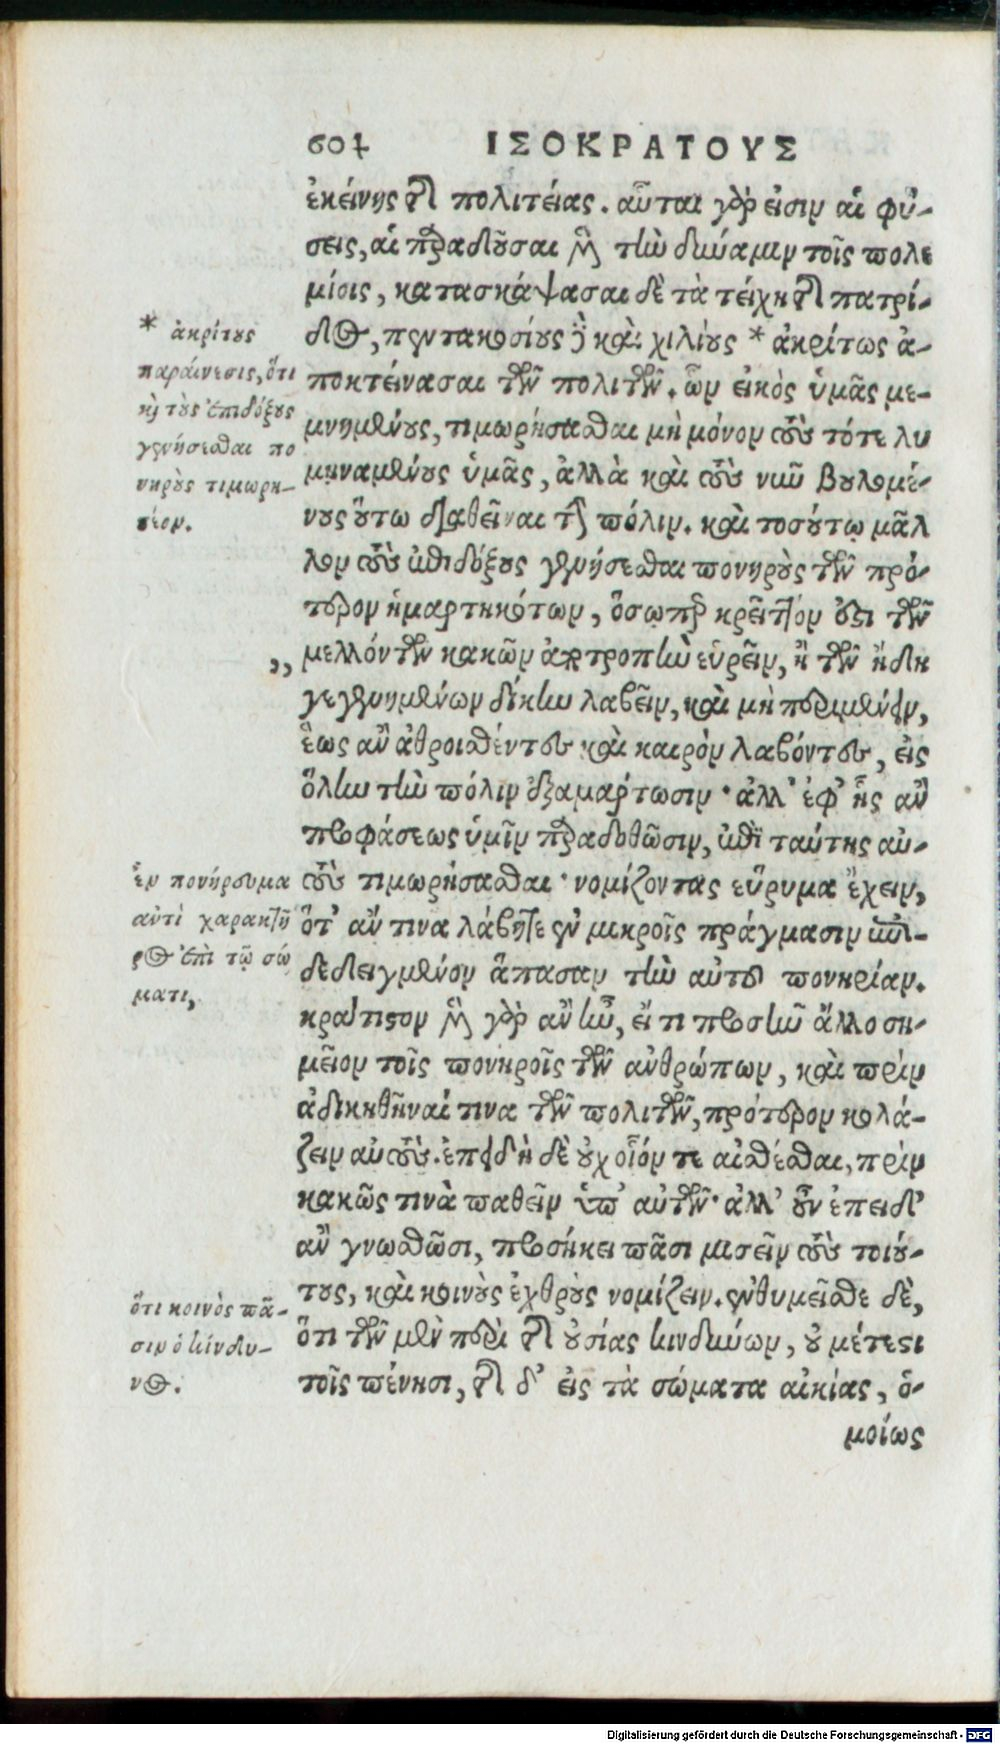 604 ΙΣΟΚΡΑΤΟΥΣ
ἐκείνης τῆς πολιτείας. αὗται γάρ εἰσιν αἱ φύ-
σεις, αἱ παραδοῦσαι μὲν τὴν δύναμιν τοῖς πολε
μίοις, κατασκάψασαι δὲ τὰ τείχη τῆς πατρί-
δος, πεντακοσίους δὲ καὶ χιλίους * ἀκρίτως ἀ-
ποκτείνασαι τῶν πολιτῶν. ὧν εἰκὸς ὑμᾶς με-
μνημένους, τιμωρήσασθαι μὴ μόνον τοὺς τότε λυ
μηναμένους ὑμᾶς, ἀλλὰ καὶ τοὺς νῦν βουλομέ-
νους οὕτω διαθεῖναι τὴν πόλιν. καὶ τοσούτῳ μᾶλ
λον τοὺς ἐπιδόξους γενήσεσθαι πονηροὺς τῶν πρό-
τερον ἡμαρτηκότων, ὅσῳπερ κρεῖττόν ἐστι τῶν
,, μελλόντων κακῶν ἀποτροπὴν εὑρεῖν, ἢ τῶν ἤδη
γεγενημένων δίκην λαβεῖν, καὶ μὴ περιμένειν,
ἕως ἂν ἀθροισθέντες καὶ καιρὸν λαβόντες, εἰς
ὅλην τὴν πόλιν ἐξαμάρτωσιν· ἀλλ' ἐφ' ἧς ἂν
προφάσεως ὑμῖν παραδοθῶσιν, ἐπὶ ταύτης αὐ-
τοὺς τιμωρήσασθαι· νομίζοντας εὕρυμα ἔχειν,
ὅτ' ἄν τινα λάβητε ἐν μικροῖς πράγμασιν ἐπι-
δεδειγμένον ἅπασαν τὴν αὐτοῦ πονηρίαν.
κράτιστον μὲν γὰρ ἂν ἦν, εἴ τι προσῆν ἄλλο ση-
μεῖον τοῖς πονηροῖς τῶν ἀνθρώπων, καὶ πρὶν
ἀδικηθῆναί τινα τῶν πολιτῶν, πρότερον κολά-
ζειν αὐτούς. ἐπειδὴ δὲ οὐχ οἷόν τε αἰσθέσθαι, πρὶν
κακῶς τινὰ παθεῖν ὑπ' αὐτῶν· ἀλλ' οὖν ἐπειδ'
ἂν γνωσθῶσι, προσήκει πᾶσι μισεῖν τοὺς τοιού-
τους, καὶ κοινοὺς ἐχθροὺς νομίζειν. ἐνθυμεῖσθε δὲ,
ὅτι τῶν μὲν περὶ τῆς οὐσίας κινδύνων, οὐ μέτεστι
τοῖς πένησι, τῆς δ' εἰς τὰ σώματα αἰκίας, ὁ-
μοίως
* ἀκρίτους
παραίνεσις, ὅτι
καὶ τοὺς ἐπιδόξους
γενήσεσθαι πο
νηροὺς τιμωρη-
τέον.
ἓν πονήρευμα
ἀντὶ χαρακτῆ
ρος ἐπὶ τῷ σώ
ματι,
ὅτι κοινὸς πᾶ-
σιν ὁ κίνδυ-
νος.
Digitalisierung gefördert durch die Deutsche Forschungsgemeinschaft - DFG